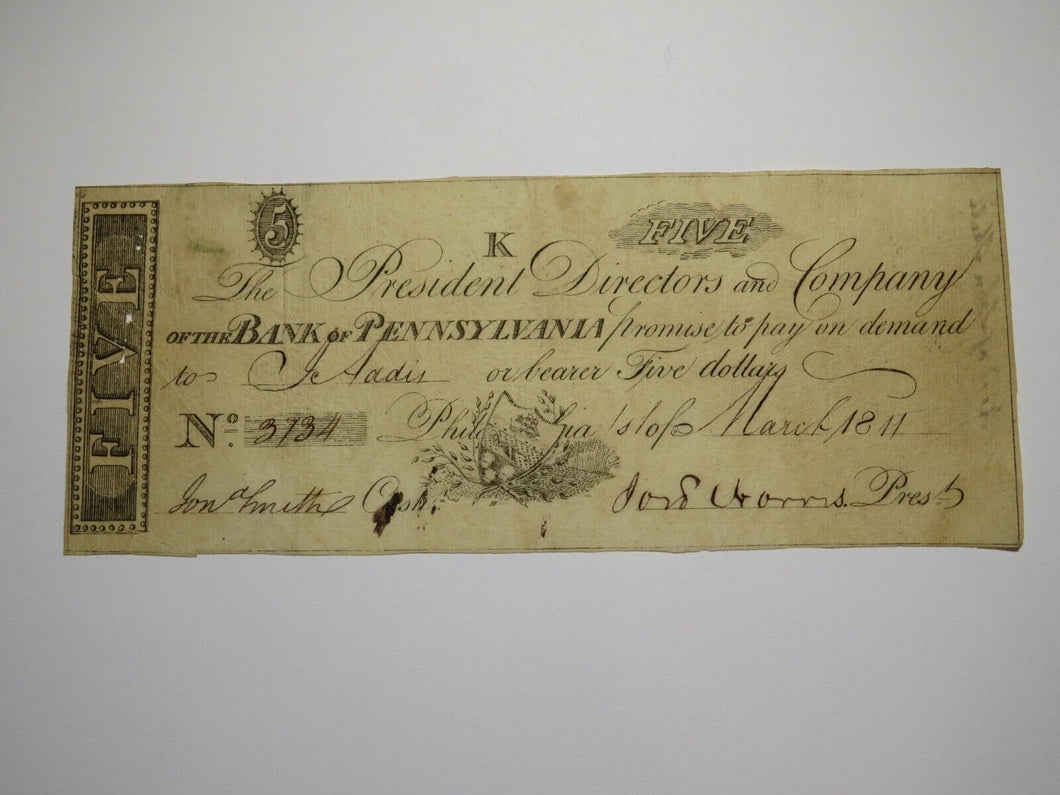 FIVE
5
K
FIVE
The President Directors and Company
OF THE BANK OF PENNSYLVANIA promise to pay on demand
to or bearer Five dollars
No. 3734 Phil phia 1st of March 1811
Jona Smith Cashr. Jos Norris. Prest.